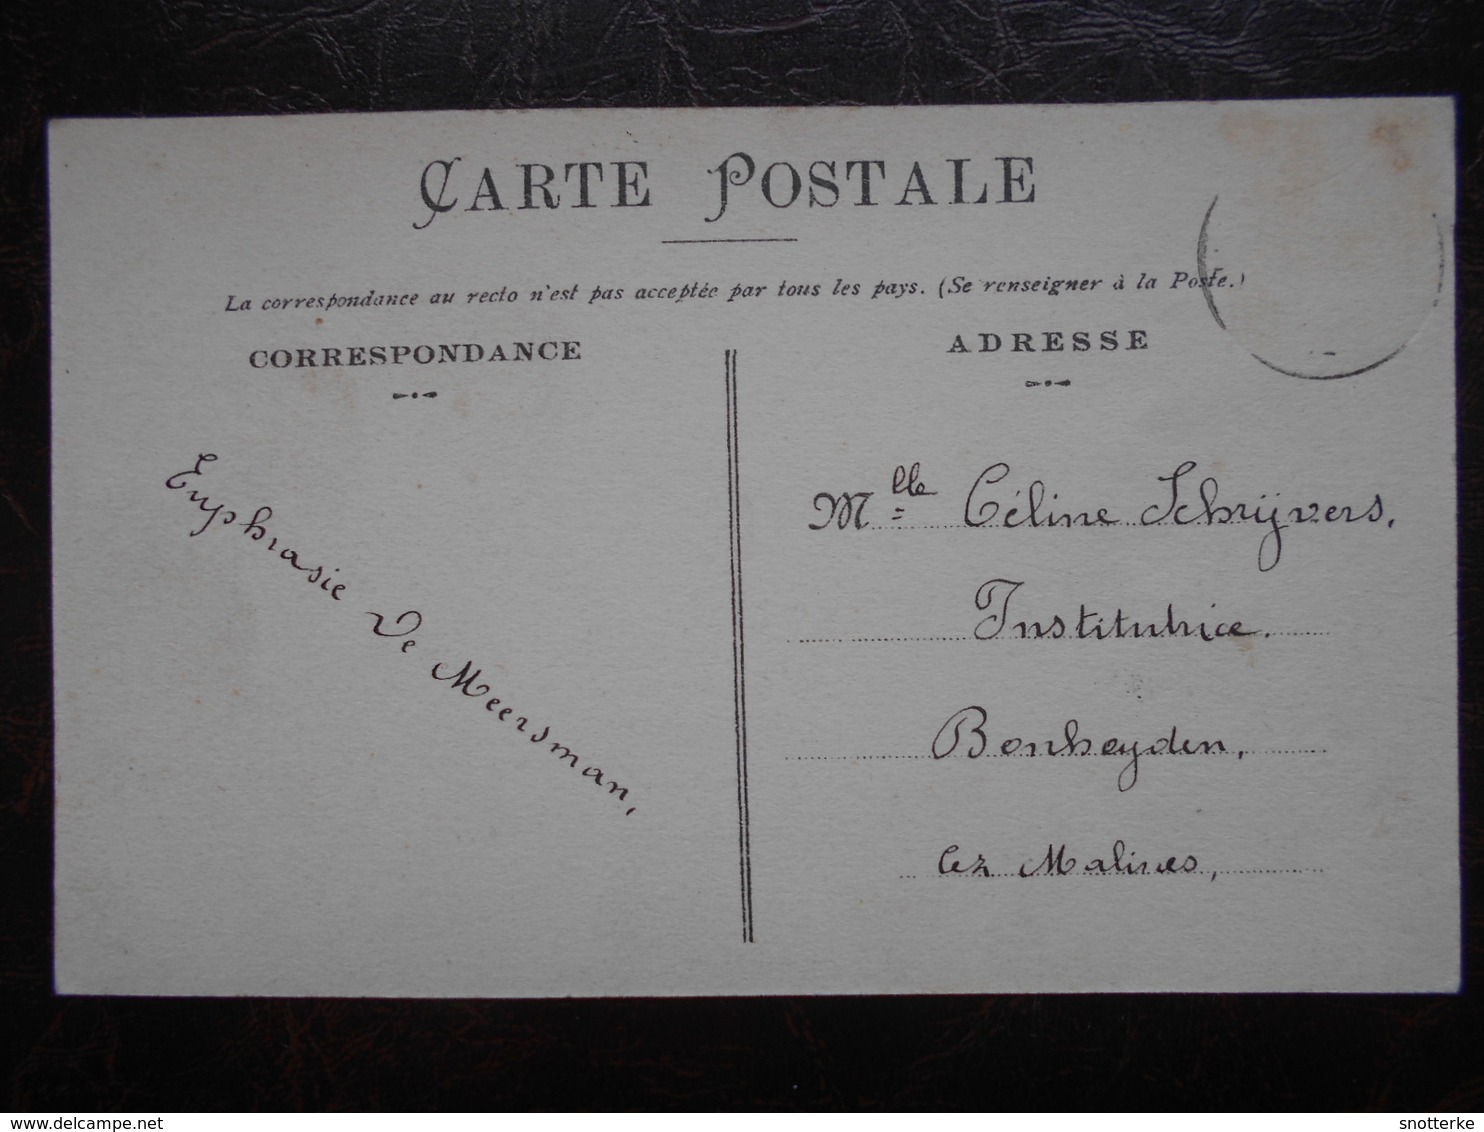 CARTE POSTALE
La correspondance au recto n'est pas acceptée par tous les pays. (Se renseigner à la Poste.)
CORRESPONDANCE
Euphrasie De Meersman,
ADRESSE
Mlle Céline Schrijvers,
Institutrice.
Bonheyden,
lez Malines,
delcampe.net
snotterke